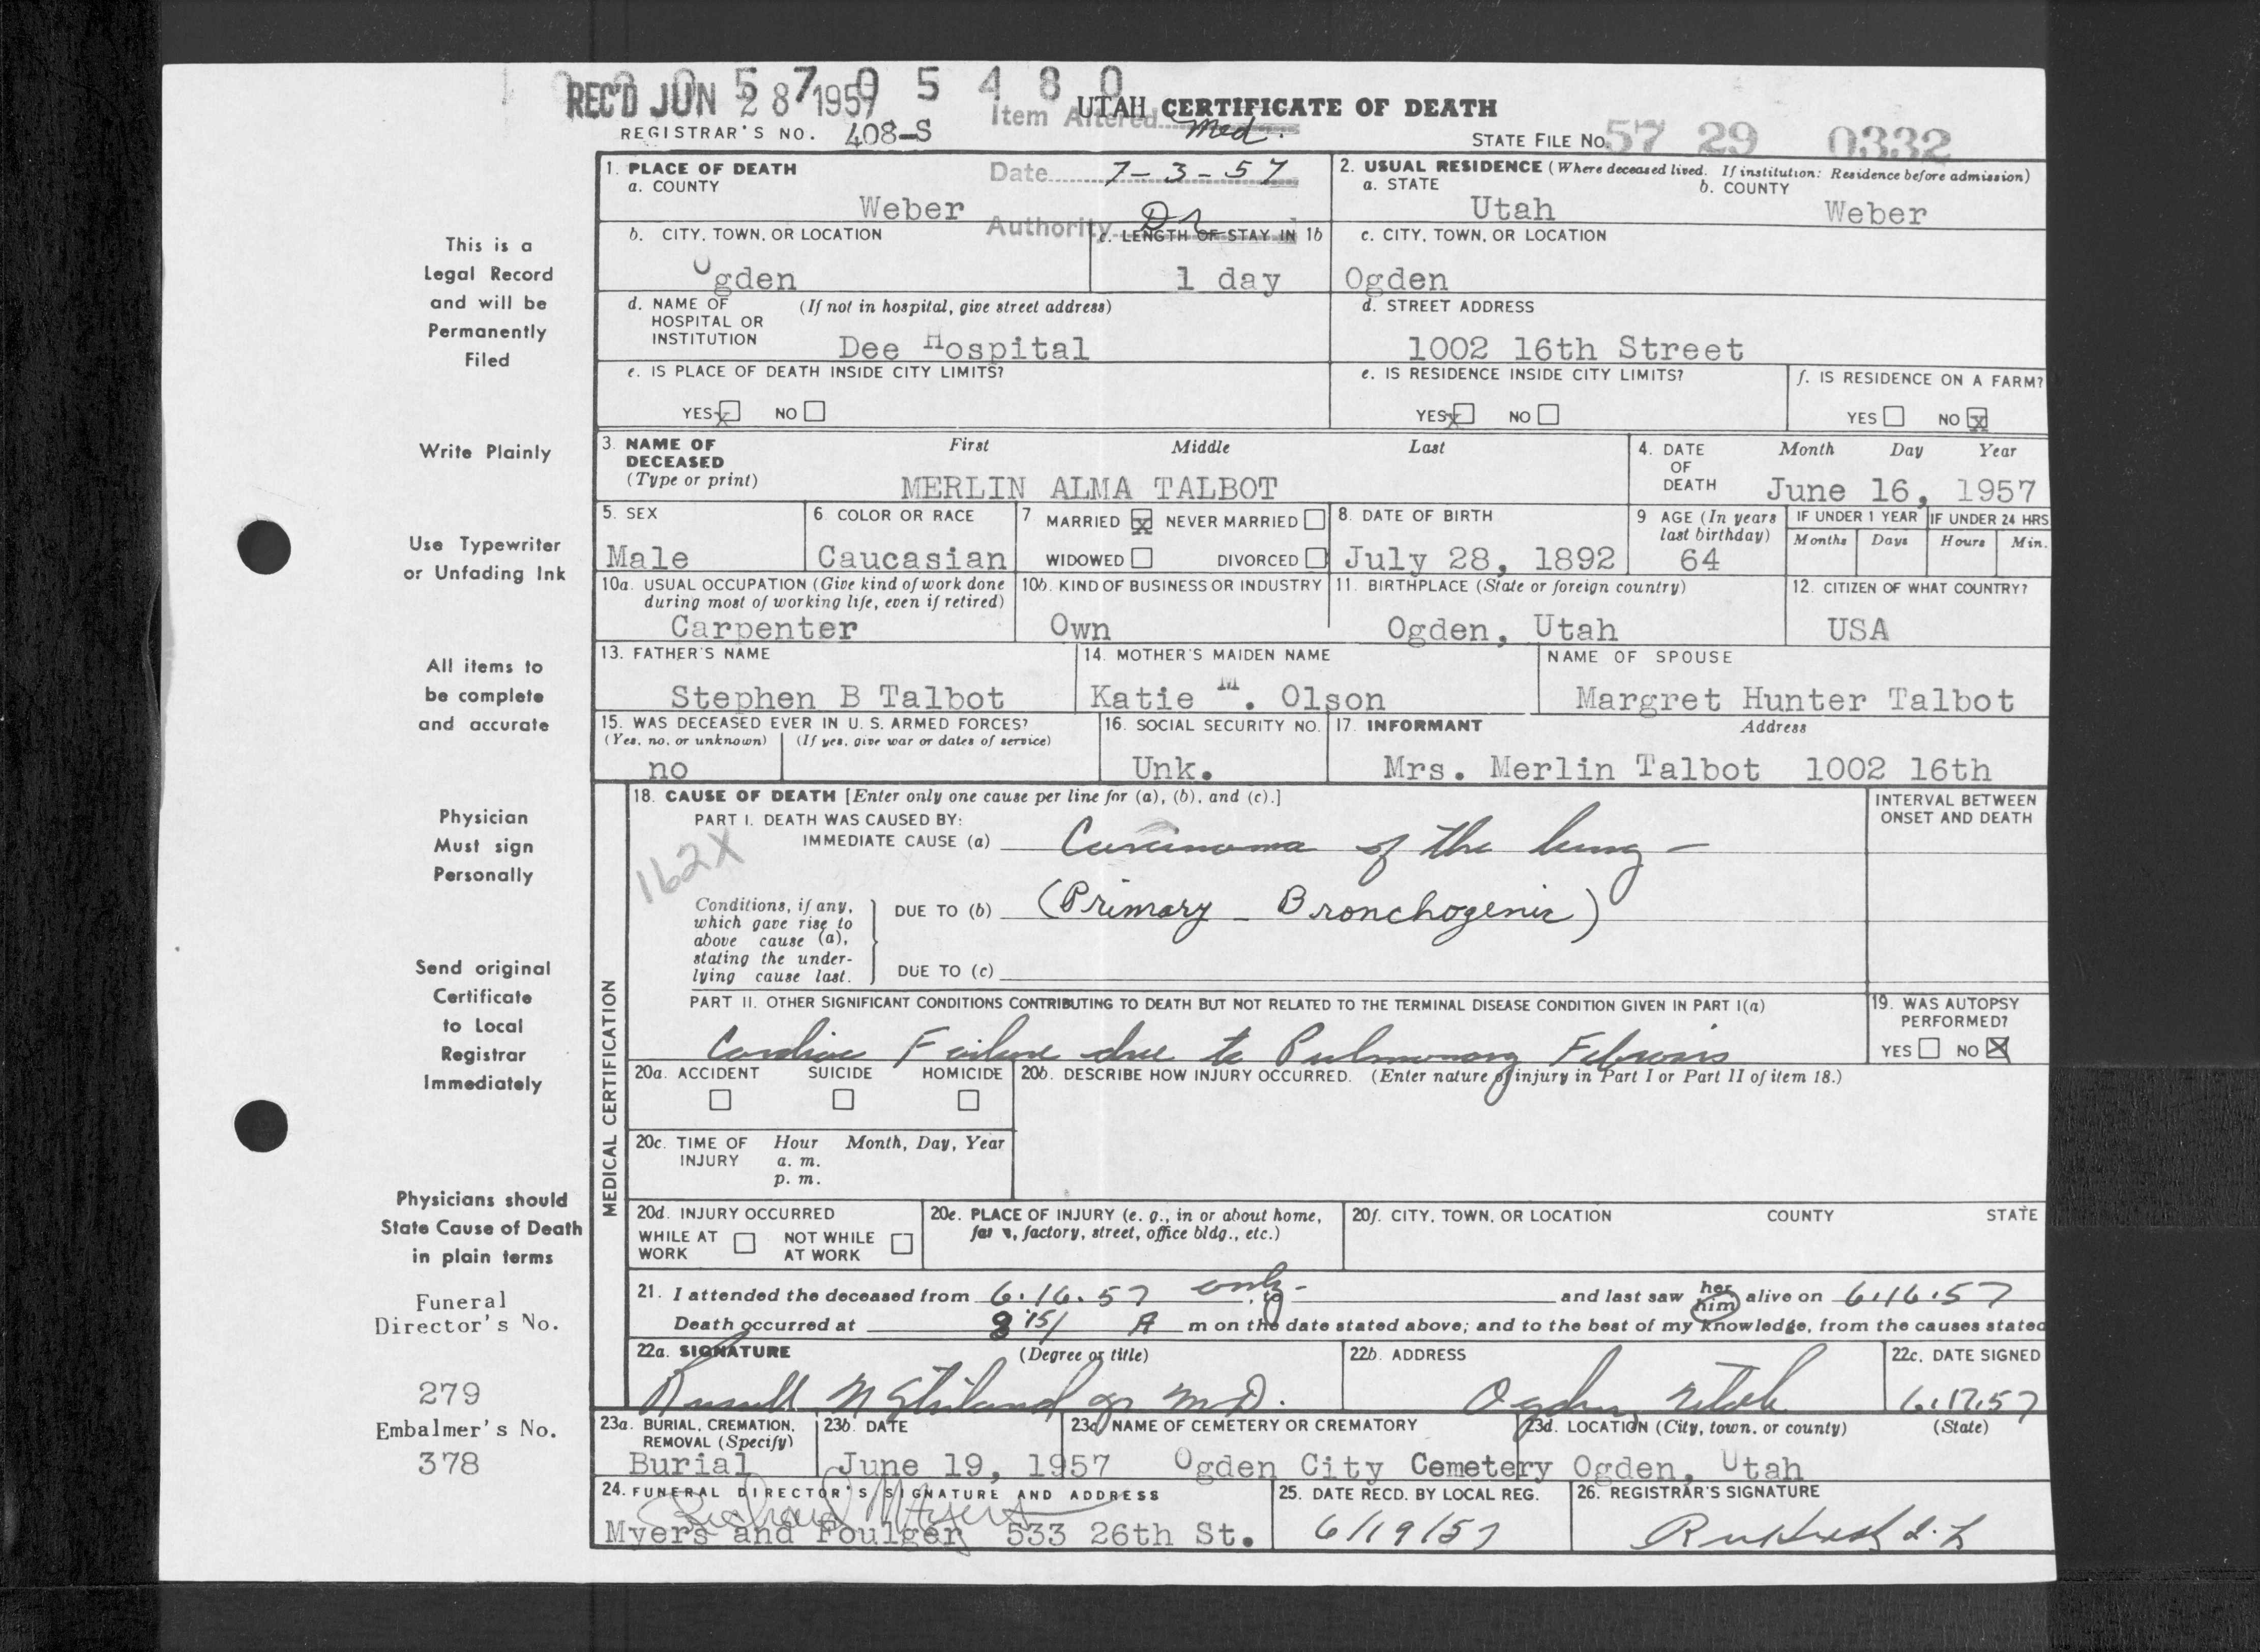 REC'D JUN 28 1957
5 7 0 5 4 8 0
UTAH CERTIFICATE OF DEATH
Item Altered Med.
REGISTRAR'S NO. 408-S
STATE FILE NO. 57 29 0332
Date 7-3-57
Authority Dr
1. PLACE OF DEATH
a. COUNTY
Weber
2. USUAL RESIDENCE (Where deceased lived. If institution: Residence before admission)
a. STATE b. COUNTY
Utah Weber
b. CITY, TOWN, OR LOCATION
Ogden
c. LENGTH OF STAY IN 1b
1 day
c. CITY, TOWN, OR LOCATION
Ogden
d. NAME OF HOSPITAL OR INSTITUTION (If not in hospital, give street address)
Dee Hospital
d. STREET ADDRESS
1002 16th Street
e. IS PLACE OF DEATH INSIDE CITY LIMITS?
YES x NO
e. IS RESIDENCE INSIDE CITY LIMITS?
YES x NO
f. IS RESIDENCE ON A FARM?
YES NO x
3. NAME OF DECEASED (Type or print)
First Middle Last
MERLIN ALMA TALBOT
4. DATE OF DEATH
Month Day Year
June 16, 1957
5. SEX
Male
6. COLOR OR RACE
Caucasian
7 MARRIED x NEVER MARRIED
WIDOWED DIVORCED
8. DATE OF BIRTH
July 28, 1892
9 AGE (In years last birthday)
64
IF UNDER 1 YEAR
Months Days
IF UNDER 24 HRS
Hours Min.
10a. USUAL OCCUPATION (Give kind of work done during most of working life, even if retired)
Carpenter
10b. KIND OF BUSINESS OR INDUSTRY
Own
11. BIRTHPLACE (State or foreign country)
Ogden, Utah
12. CITIZEN OF WHAT COUNTRY?
USA
13. FATHER'S NAME
Stephen B Talbot
14. MOTHER'S MAIDEN NAME
Katie M. Olson
NAME OF SPOUSE
Margret Hunter Talbot
15. WAS DECEASED EVER IN U. S. ARMED FORCES?
(Yes, no, or unknown) (If yes, give war or dates of service)
no
16. SOCIAL SECURITY NO.
Unk.
17. INFORMANT Address
Mrs. Merlin Talbot 1002 16th
MEDICAL CERTIFICATION
18. CAUSE OF DEATH [Enter only one cause per line for (a), (b), and (c).]
INTERVAL BETWEEN ONSET AND DEATH
PART I. DEATH WAS CAUSED BY:
IMMEDIATE CAUSE (a) Carcinoma of the lung -
162X
Conditions, if any, which gave rise to above cause (a), stating the underlying cause last.
DUE TO (b) (Primary - Bronchogenic)
DUE TO (c)
PART II. OTHER SIGNIFICANT CONDITIONS CONTRIBUTING TO DEATH BUT NOT RELATED TO THE TERMINAL DISEASE CONDITION GIVEN IN PART I(a)
Cardiac Failure due to Pulmonary Fibrosis
19. WAS AUTOPSY PERFORMED?
YES NO X
20a. ACCIDENT SUICIDE HOMICIDE
20b. DESCRIBE HOW INJURY OCCURRED. (Enter nature of injury in Part I or Part II of item 18.)
20c. TIME OF INJURY
Hour Month, Day, Year
a. m.
p. m.
20d. INJURY OCCURRED
WHILE AT WORK NOT WHILE AT WORK
20e. PLACE OF INJURY (e. g., in or about home, farm, factory, street, office bldg., etc.)
20f. CITY, TOWN, OR LOCATION COUNTY STATE
21. I attended the deceased from 6.16.57 only - to and last saw her him alive on 6.16.57
Death occurred at 8:15 A m on the date stated above; and to the best of my knowledge, from the causes stated
22a. SIGNATURE (Degree or title)
Russell N M.D.
22b. ADDRESS
Ogden Utah
22c. DATE SIGNED
6.17.57
23a. BURIAL, CREMATION, REMOVAL (Specify)
Burial
23b. DATE
June 19, 1957
23c. NAME OF CEMETERY OR CREMATORY
Ogden City Cemetery
23d. LOCATION (City, town, or county) (State)
Ogden, Utah
24. FUNERAL DIRECTOR'S SIGNATURE AND ADDRESS
Myers and Foulger 533 26th St.
25. DATE RECD. BY LOCAL REG.
6/19/57
26. REGISTRAR'S SIGNATURE
This is a
Legal Record
and will be
Permanently
Filed
Write Plainly
Use Typewriter
or Unfading Ink
All items to
be complete
and accurate
Physician
Must sign
Personally
Send original
Certificate
to Local
Registrar
Immediately
Physicians should
State Cause of Death
in plain terms
Funeral
Director's No.
279
Embalmer's No.
378